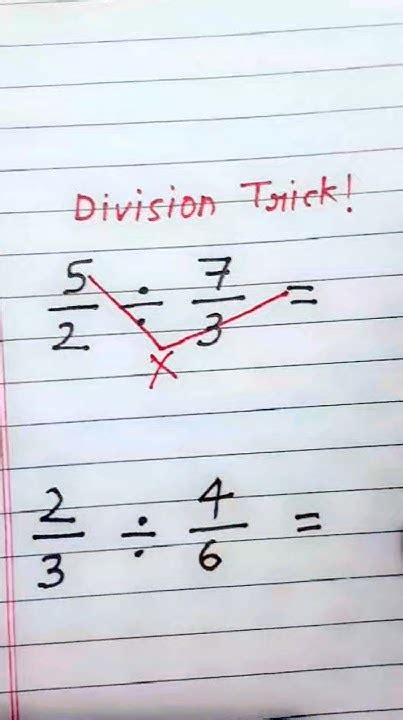 Division Trick!
5/2 ÷ 7/3 =
X
2/3 ÷ 4/6 =